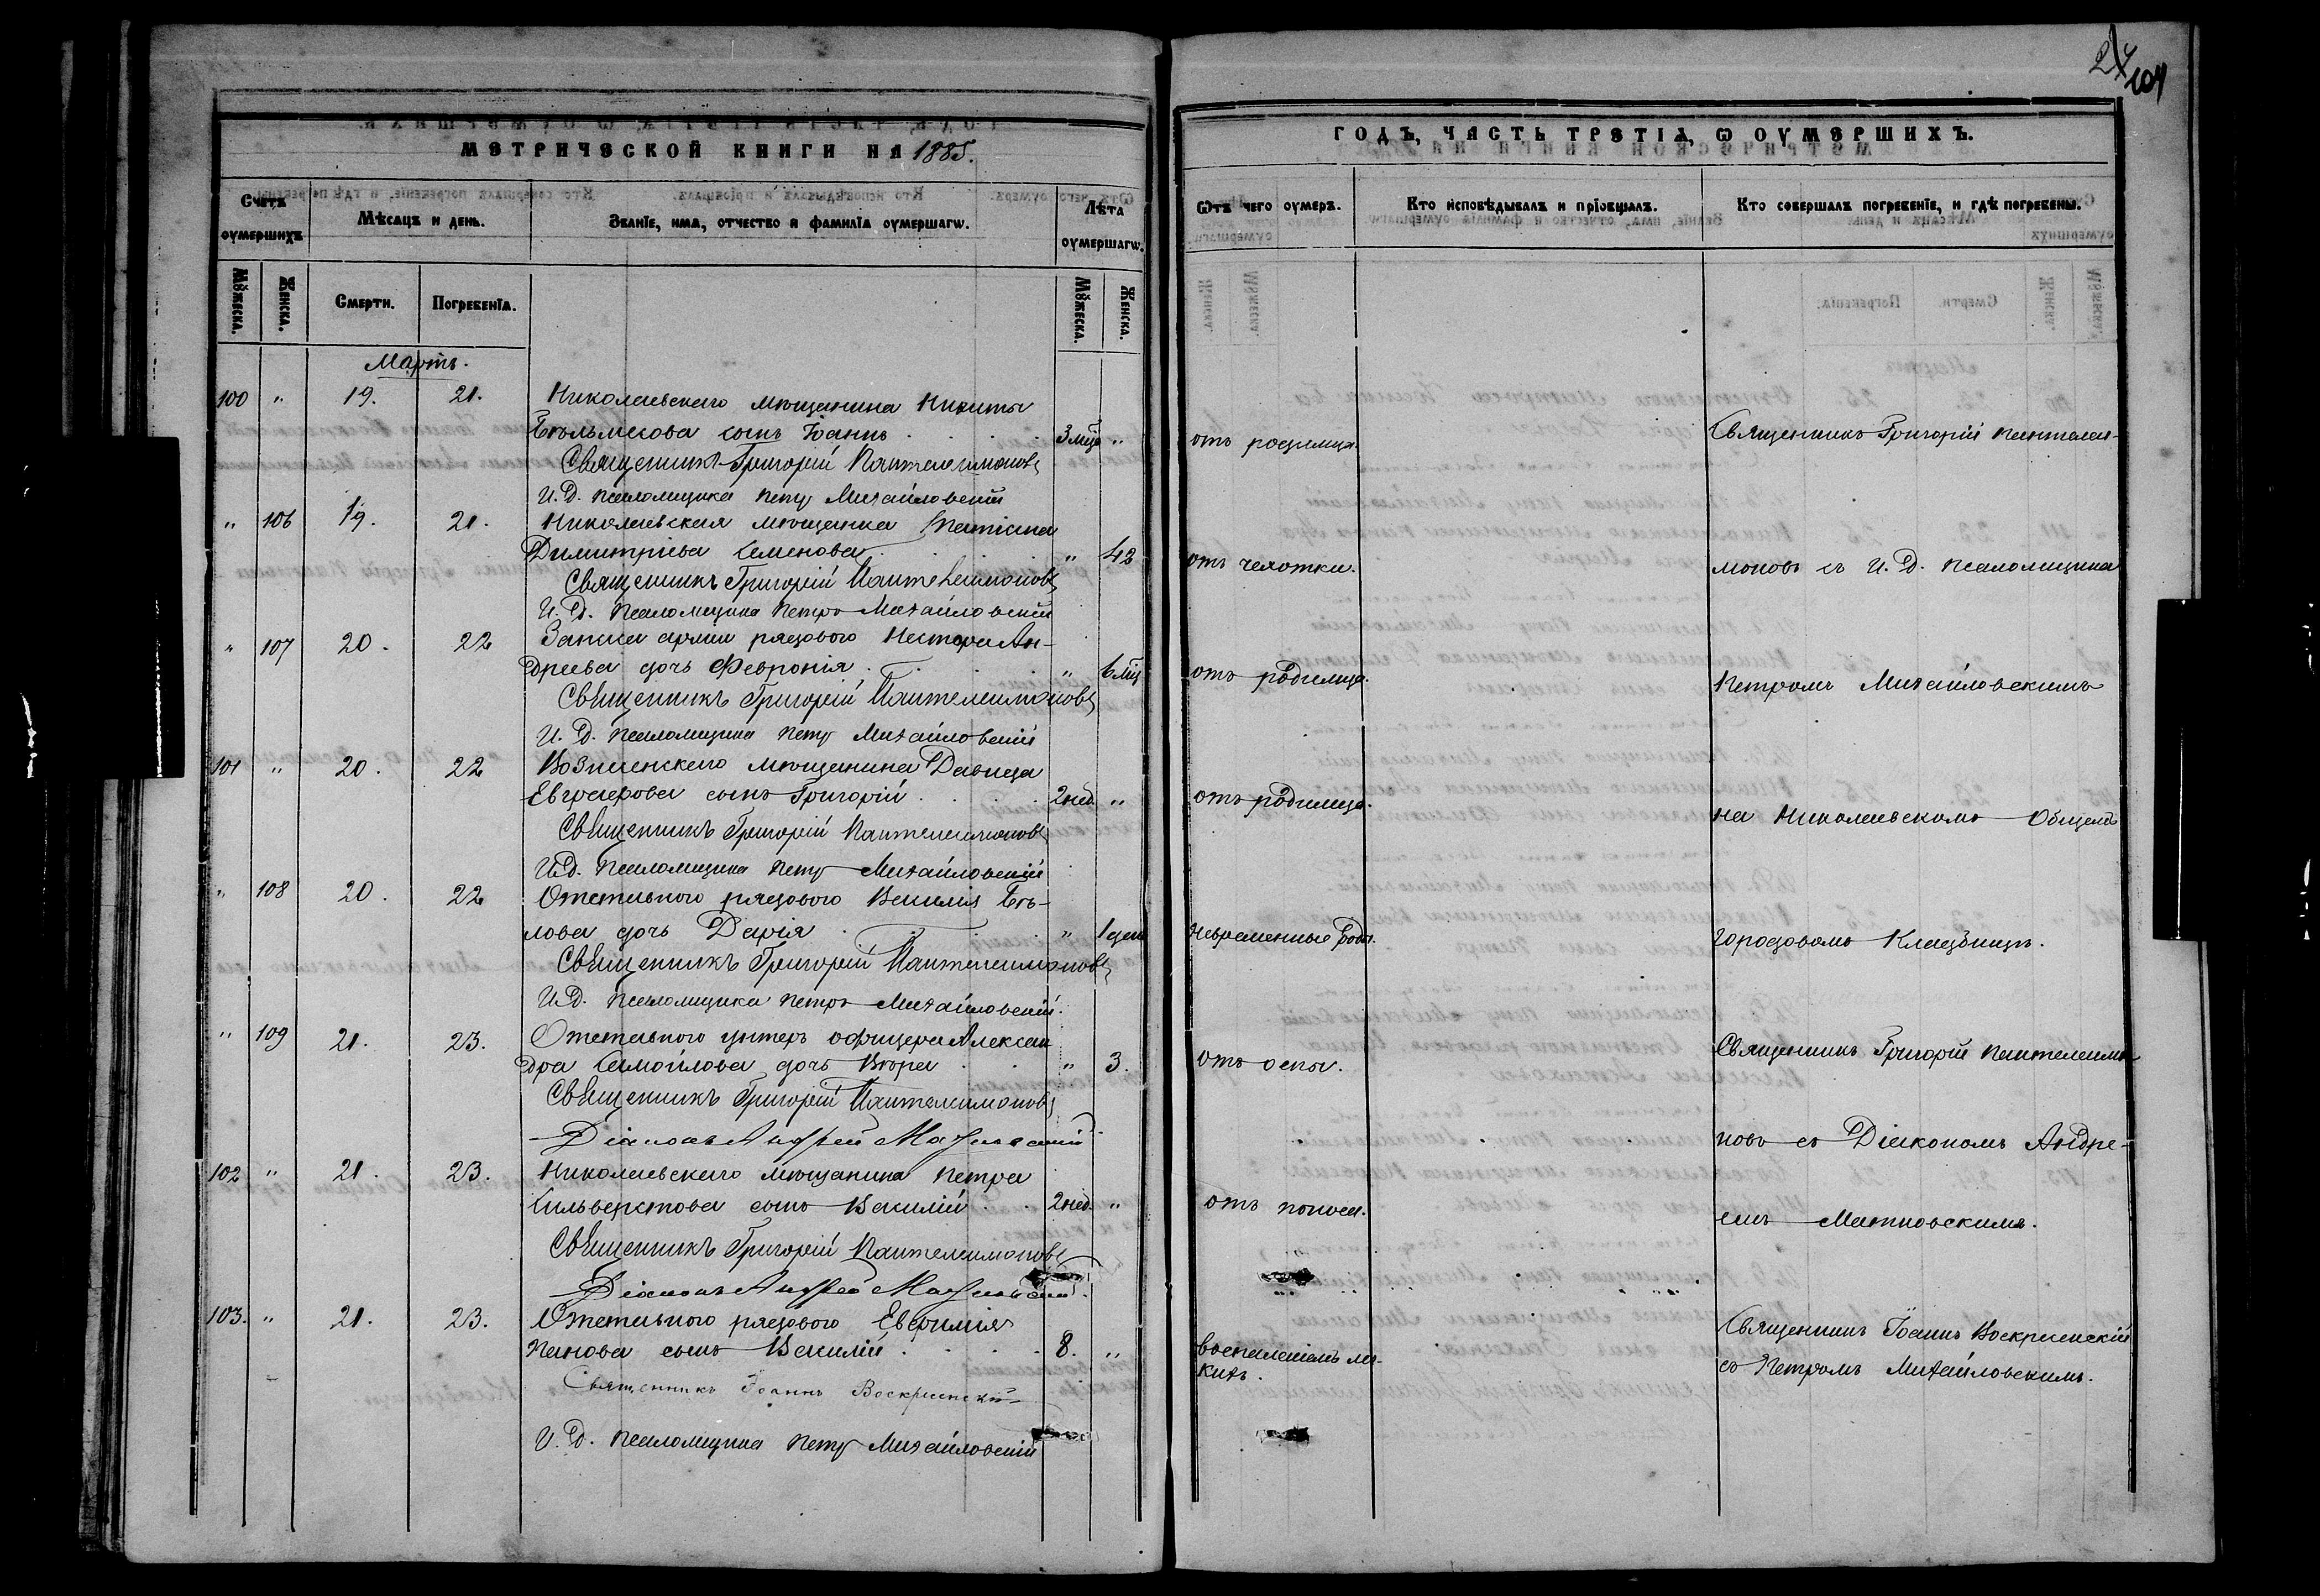 МЕТРИЧЕСКОЙ КНИГИ НА 1885.
Счетъ оумершихъ
Мѣсяцъ и день.
Званіе, имя, отчество и фамилія оумершагѡ.
Лѣта оумершагѡ.
Мꙋжеска.
Женска.
Смерти.
Погребенія.
Мꙋжеска.
Женска.
Мартъ.
100 " 19. 21. Николаевскаго мѣщанина Никиты
сынъ Іоаннъ 3 мца "
Священникъ Григорій Пантелеимоновъ
И. Д. Псаломщика Петръ Михайловскій
" 106 19. 21. Николаевская мѣщанка
Димитріева Семенова " 42
Священникъ Григорій Пантелеимоновъ
И. Д. Псаломщика Петръ Михайловскій
" 107 20. 22 Запаса арміи рядового Нестора Ан-
дреева дочь Февронія " 6 мц
Священникъ Григорій Пантелеимоновъ
И. Д. Псаломщика Петръ Михайловскій
101 " 20. 22 Вознесенскаго мѣщанина Давида
Евграфова сынъ Григорій 2 нед. "
Священникъ Григорій Пантелеимоновъ
И.Д. Псаломщика Петръ Михайловскій
" 108 20. 22 Отставного рядового Василія Бѣ-
лова дочь Дарія " 1 день
Священникъ Григорій Пантелеимоновъ
И.Д. Псаломщика Петръ Михайловскій.
" 109 21. 23. Отставного унтеръ офицера Алексан
дра Самойлова дочь Вѣра " 3.
Священникъ Григорій Пантелеимоновъ
Діаконъ Андрей
102 " 21. 23. Николаевскаго мѣщанина Петра
Сильверстова сынъ Василій 2 нед. "
Священникъ Григорій Пантелеимоновъ
Діаконъ Андрей
103. " 21. 23. Отставного рядового Евфимія
Панова сынъ Василій 8. "
Священникъ Іоаннъ Воскресенскій
И. Д. Псаломщика Петръ Михайловскій
ГОДЪ, ЧАСТЬ ТРЕТІЯ, Ѡ ОУМЕРШИХЪ.
Ѿтъ чего оумеръ.
Кто исповѣдывалъ и пріобщалъ.
Кто совершалъ погребеніе, и гдѣ погребены.
отъ родимца. Священникъ Григорій Пантелеи-
отъ чахотки. моновъ съ И. Д. Псаломщика
отъ родимца. Петромъ Михайловскимъ
отъ родимца. на Николаевскомъ Общемъ
невременные роды. городовомъ Кладбищѣ.
отъ оспы. Священникъ Григорій Пантелеимо-
новъ съ Діакономъ Андре-
отъ поноса. емъ
воспаленіемъ лег-
кихъ.
Священникъ Іоаннъ Воскресенскій
съ Петромъ Михайловскимъ.